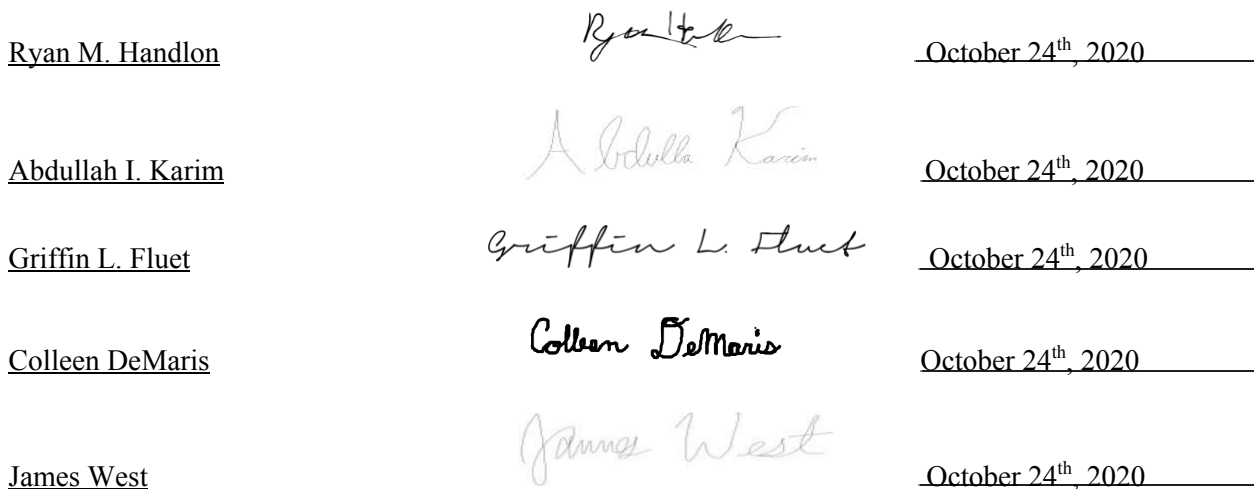 Ryan M. Handlon Ryan H October 24th, 2020
Abdullah I. Karim Abdulla Karim October 24th, 2020
Griffin L. Fluet Griffin L. Fluet October 24th, 2020
Colleen DeMaris Colleen DeMaris October 24th, 2020
James West James West October 24th, 2020